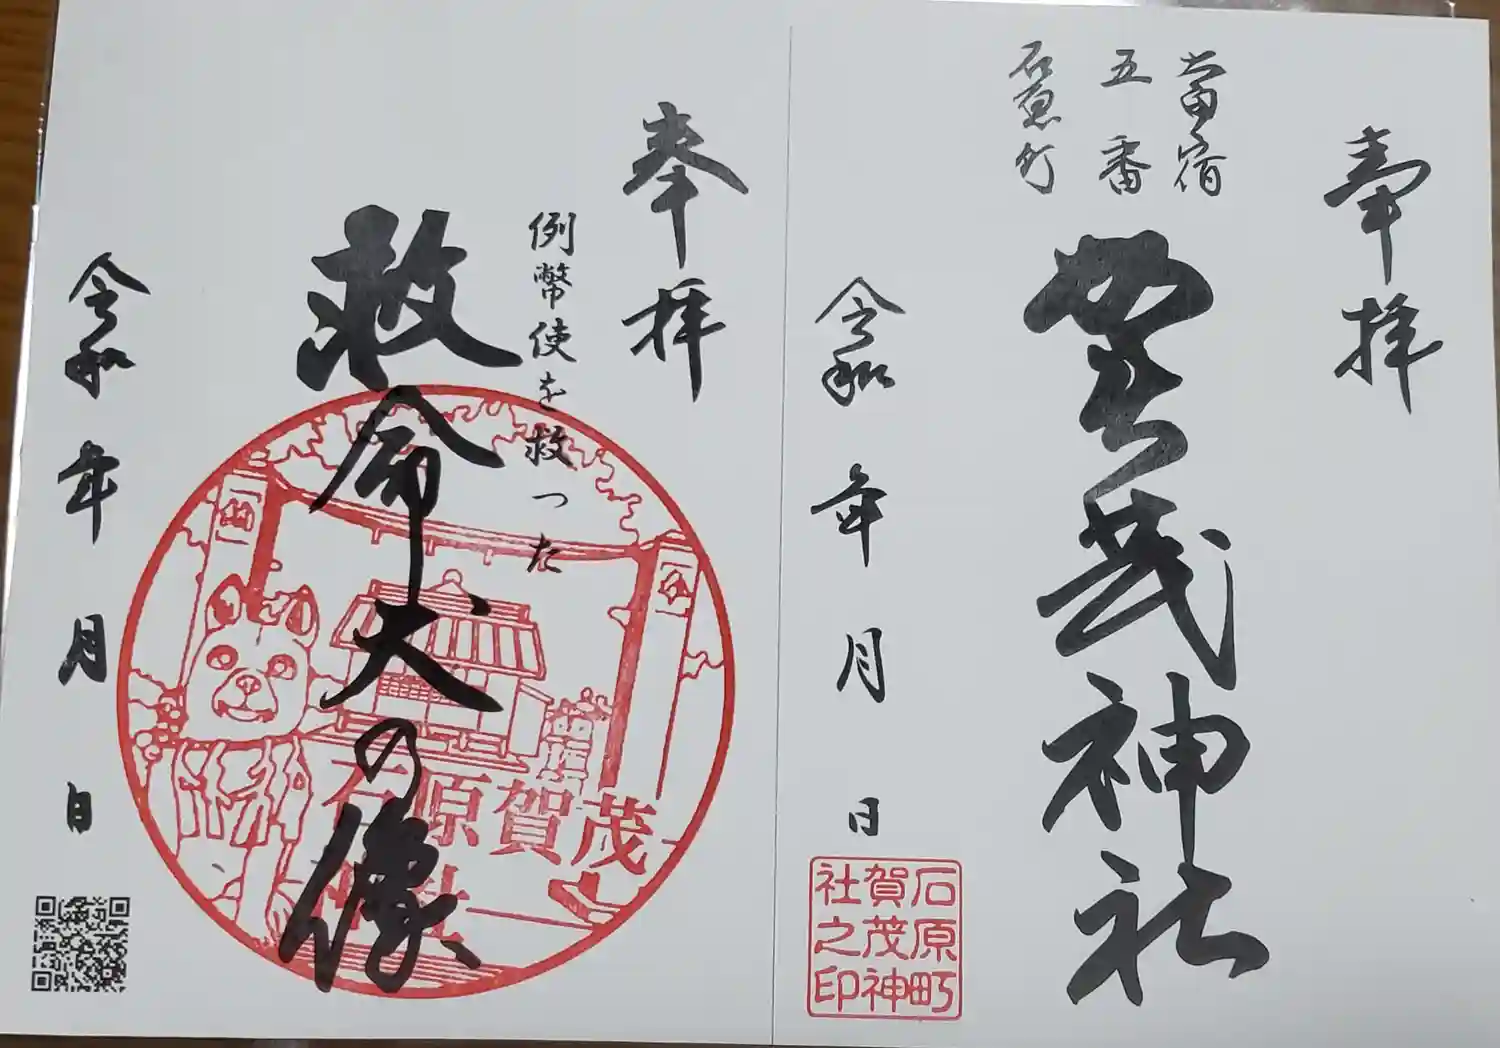 奉拝
當宿
五番
石原町
賀茂神社
令和 年 月 日
石原町
賀茂神
社之印
奉拝
例幣使を救った
救命犬の像
石原賀茂
神社
令和 年 月 日